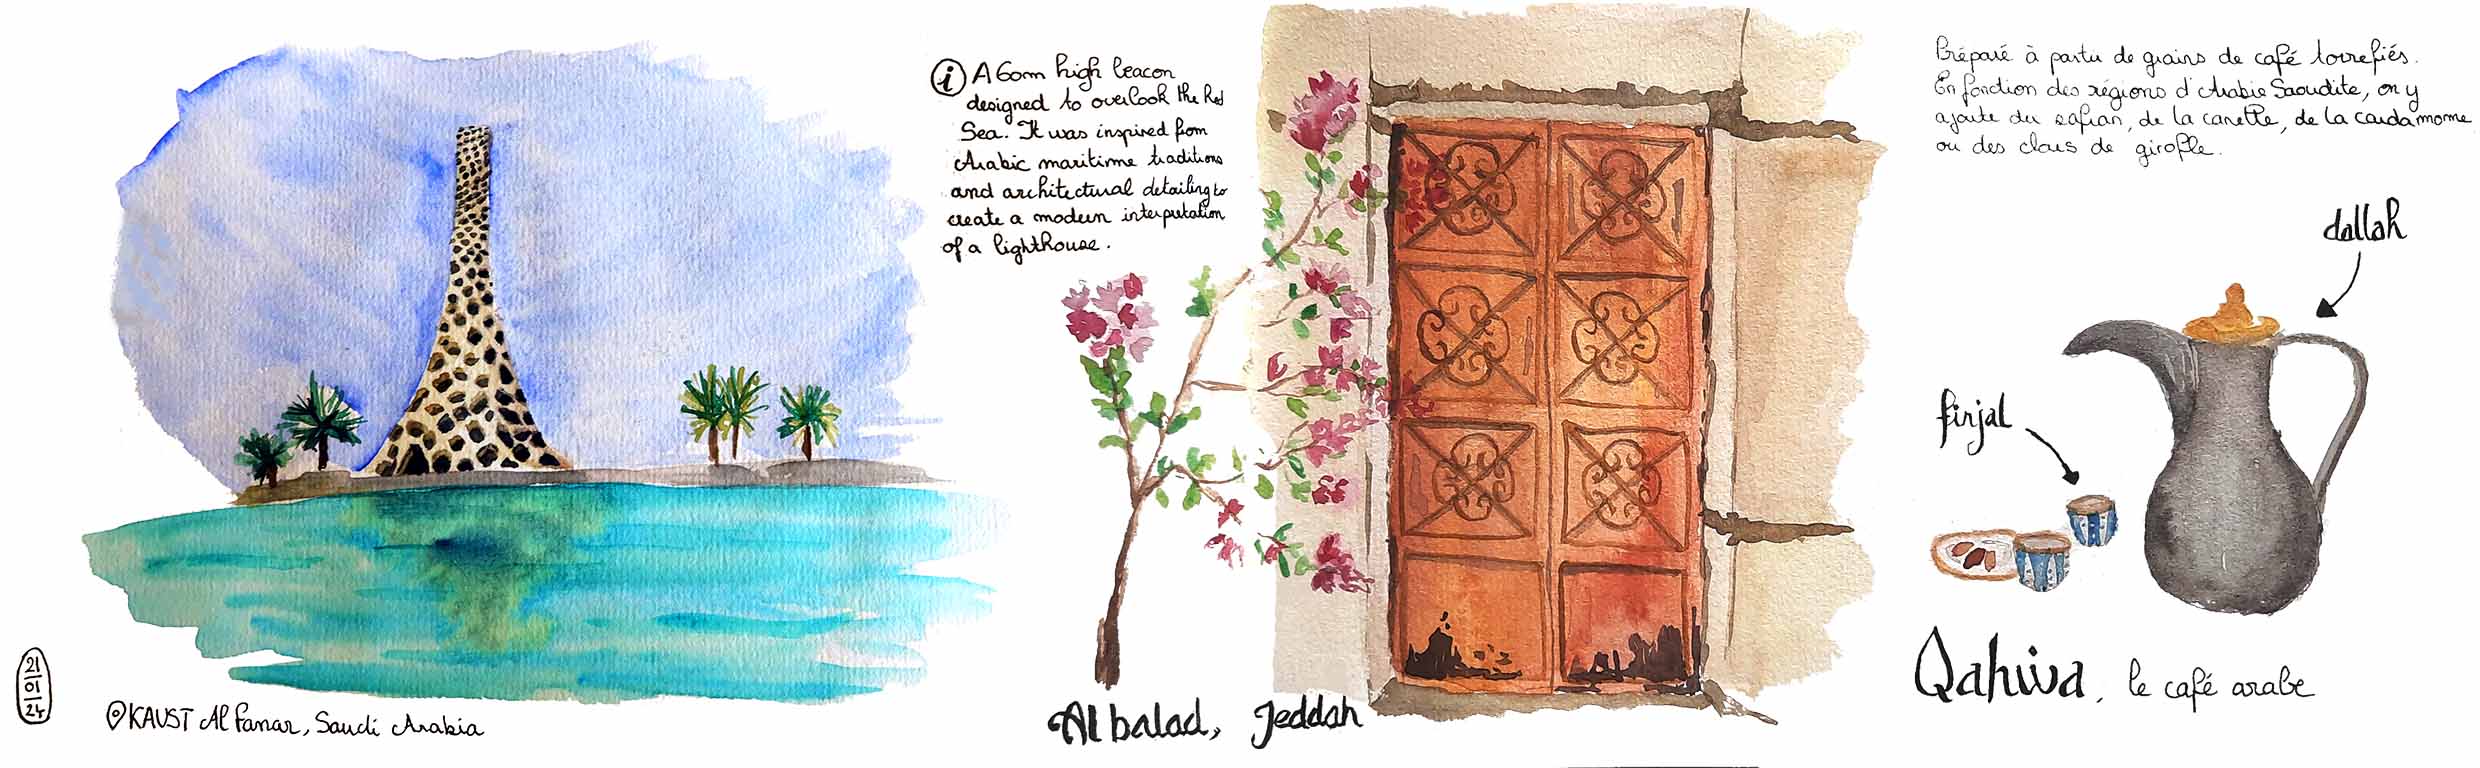 21
01
24
KAUST Al Fanar, Saudi Arabia
i A 60m high beacon
designed to overlook the Red
Sea. It was inspired from
Arabic maritime traditions
and architectural detailing to
create a modern interpretation
of a lighthouse.
Al balad, Jeddah
Préparé à partir de grains de café torrefiés.
En fonction des régions d'Arabie Saoudite, on y
ajoute du safran, de la canelle, de la cardamome
ou des clous de girofle.
dallah
firjal
Qahwa, le café arabe